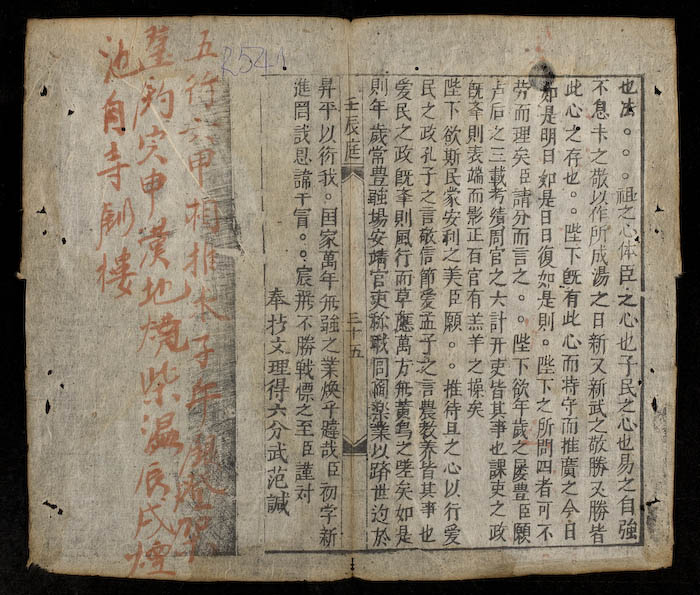 也法。。。祖之心体臣之心也子民之心也易之自強
不息卡之敬以作所成湯之日新又新武之敬勝又勝皆
此心之存也。。陛下旣有此心而持守而推廣之今日
如是明日如是日日復如是則。陛下之所問四者可不
劳而理矣臣請分而言之。。陛下欲年歲之屡豊臣願
卢后之三載考績周官之大計开吏皆其事也課吏之政
旣峯則表端而影正百官有羔羊之操矣
陛下欲斯民家安利之美臣願。。推待旦之心以行爱
民之政孔子之言敬信節爱孟子之言農教养皆其事也
爱民之政旣峯則風行而草應萬方無黄鳥之墜矣如是
則年歲常豊疆場安靖官吏称職同阎楽業以跻世迫於
壬辰庭
三十五
昇平以衍我。囯家萬年無強之業煥乎韙哉臣初学新
進罔識忌諱干冒。。宸飛不勝戦慄之至臣謹对
奉抄文理得六分武范諴
R.541
五行六甲相推本子年
墓約穴申黄地燒柴温辰戌煙
池自寺樓